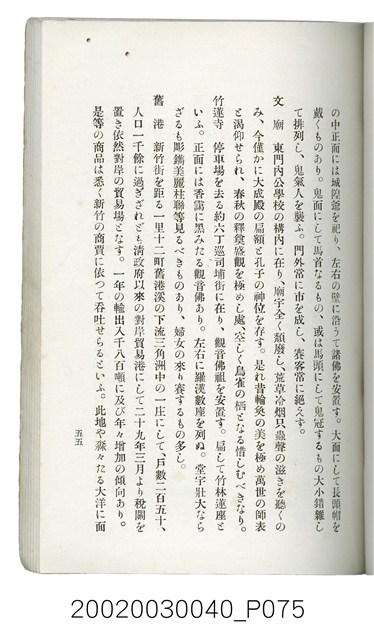 の中正面には城隍爺を祀り、左右の壁に沿うて諸佛を安置す。大面にして長頭帽を
戴くものあり。鬼面にして馬首なるもの、或は馬頭にして鬼冠するもの大小錯雜し
て排列し、鬼氣人を襲ふ。門外常に市を成し、賽客常に絕えず。
文廟 東門內公學校の構內に在り、廟宇全く頽廢し、荒草冷烟只蟲聲の滋きを聽くの
み、今僅かに大成殿の扁額と孔子の神位を存す。是れ昔輪奐の美を極め萬世の師表
と渴仰せられ、春秋の釋奠盛觀を極めし處、空しく鳥雀の栖となる惜しむべきなり。
竹蓮寺 停車場を去る約六丁巡司埔街に在り、觀音佛祖を安置す。扁して竹林蓮座と
いふ。正面には香靄に黑みたる觀音佛あり。左右に羅漢數座を列ぬ。堂宇壯大なら
ざるも彫鐫美麗柱聯等見るべきものあり、婦女の來り賽するもの多し。
舊港 新竹街を距る一里十二町舊港溪の下流三角洲中の一庄にして、戶數二百五十、
人口一千餘に過ぎざれども淸政府以來の對岸貿易港にして二十九年三月より稅關を
置き依然對岸の貿易場となす。一年の輸出入千八百噸に及び年々增加の傾向あり。
是等の商品は悉く新竹の商賈に依つて呑吐せらるといふ。此地や淼々たる大洋に面
五五
20020030040_P075